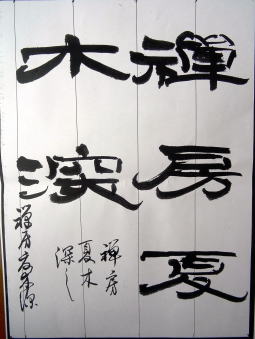 禪房夏
木深
禅房
夏木
深し
禅房夏木深